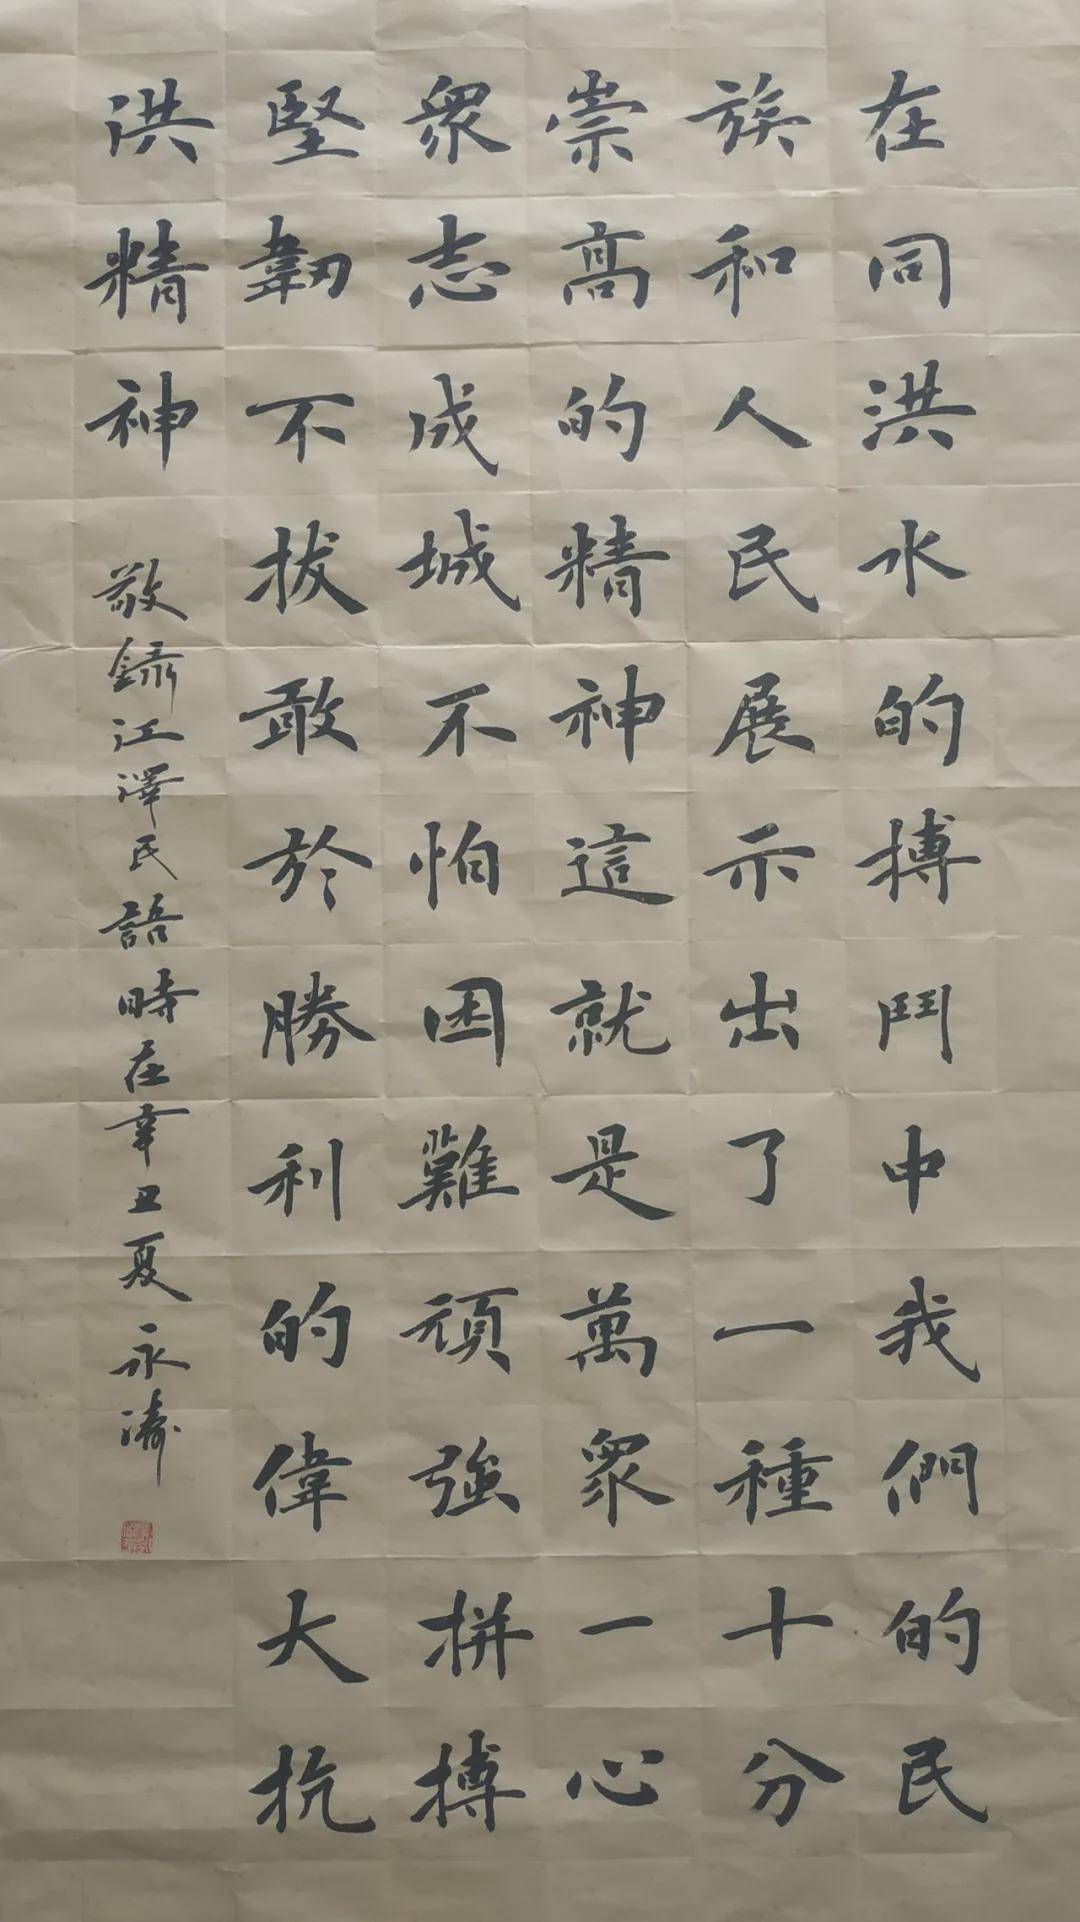 在同洪水的搏鬥中我們的民
族和人民展示出了一種十分
崇高的精神這就是萬眾一心
眾志成城不怕困難頑強拼搏
堅韌不拔敢於勝利的偉大抗
洪精神
敬錄江澤民語時在辛丑夏永濤